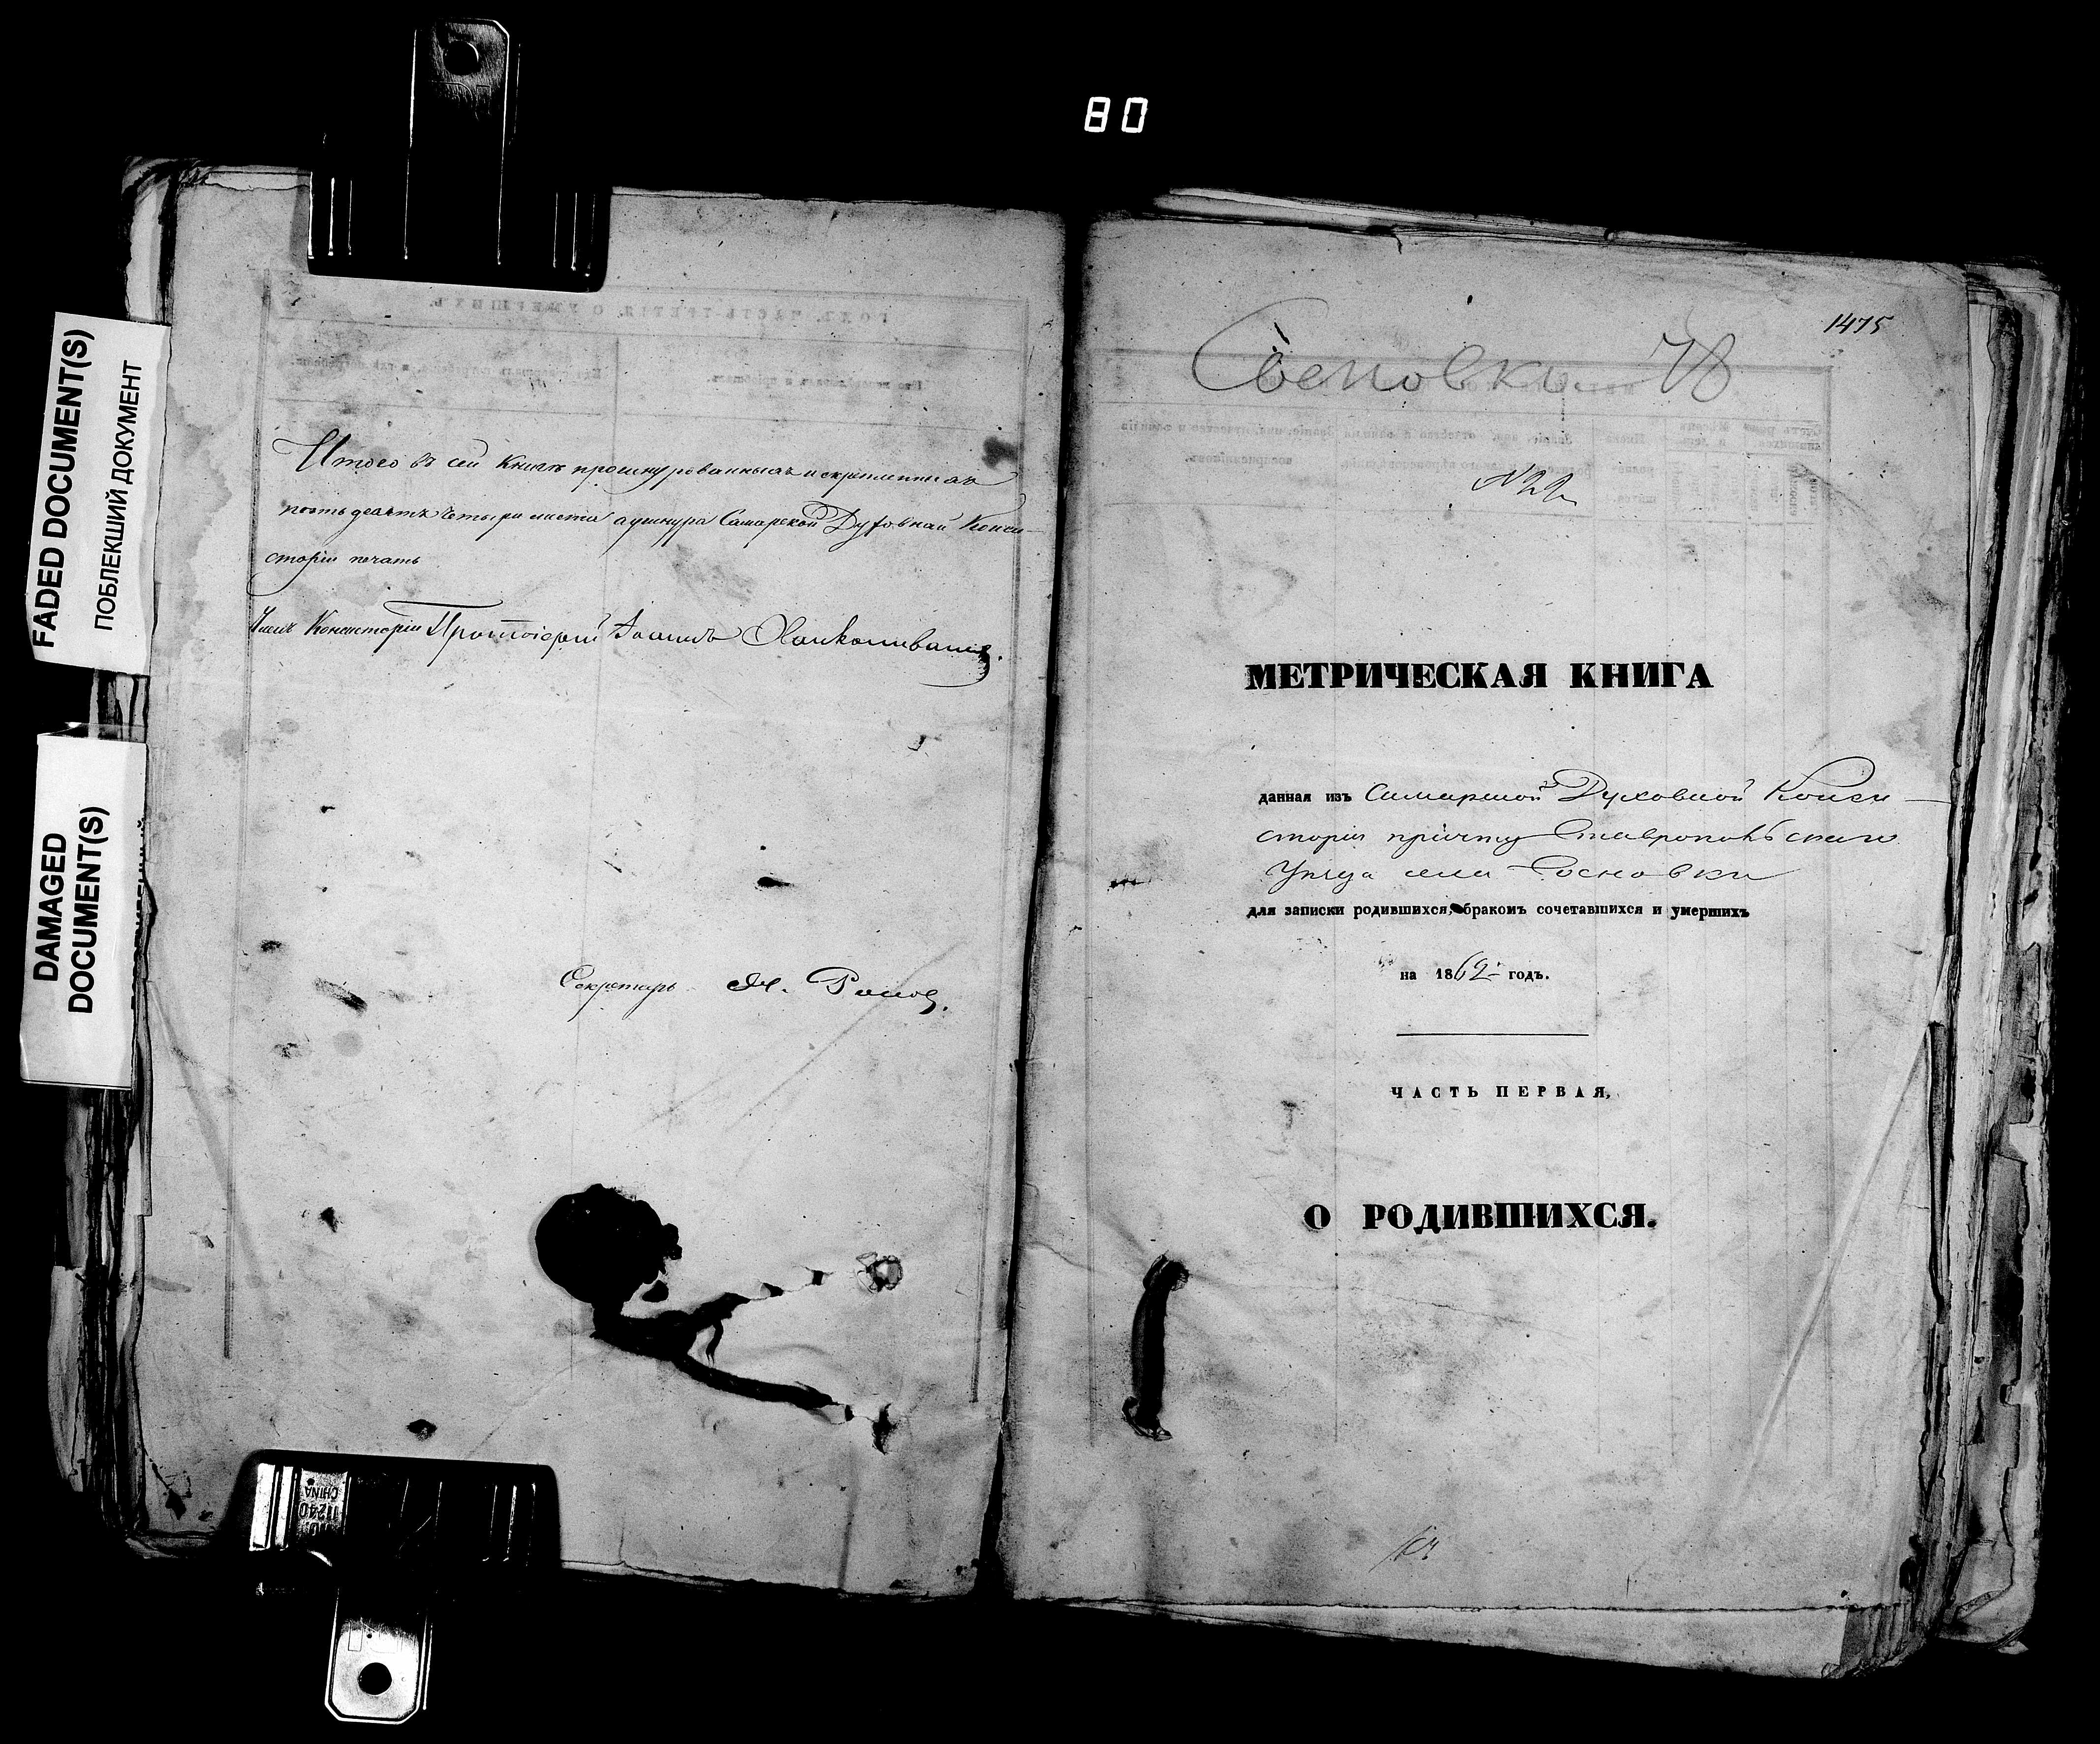 80
FADED DOCUMENT(S)
ПОБЛЕКШИЙ ДОКУМЕНТ
DAMAGED
DOCUMENT(S)
Итого въ сей книгѣ прошнурованныхъ и скрѣпленныхъ
пятьдесятъ четыре листа а у шнура Самарской Духовной Конси-
сторіи печать
Членъ Консисторіи Протоіерей Іоаннъ
Секретарь
1475
Сосновка 78
№ 22
МЕТРИЧЕСКАЯ КНИГА
данная изъ Самарской Духовной Конси-
сторіи причту Ставропольскаго
Уѣзда села Сосновки
для записки родившихся, бракомъ сочетавшихся и умершихъ
на 1862 годъ.
ЧАСТЬ ПЕРВАЯ.
О РОДИВШИХСЯ.
CHINA